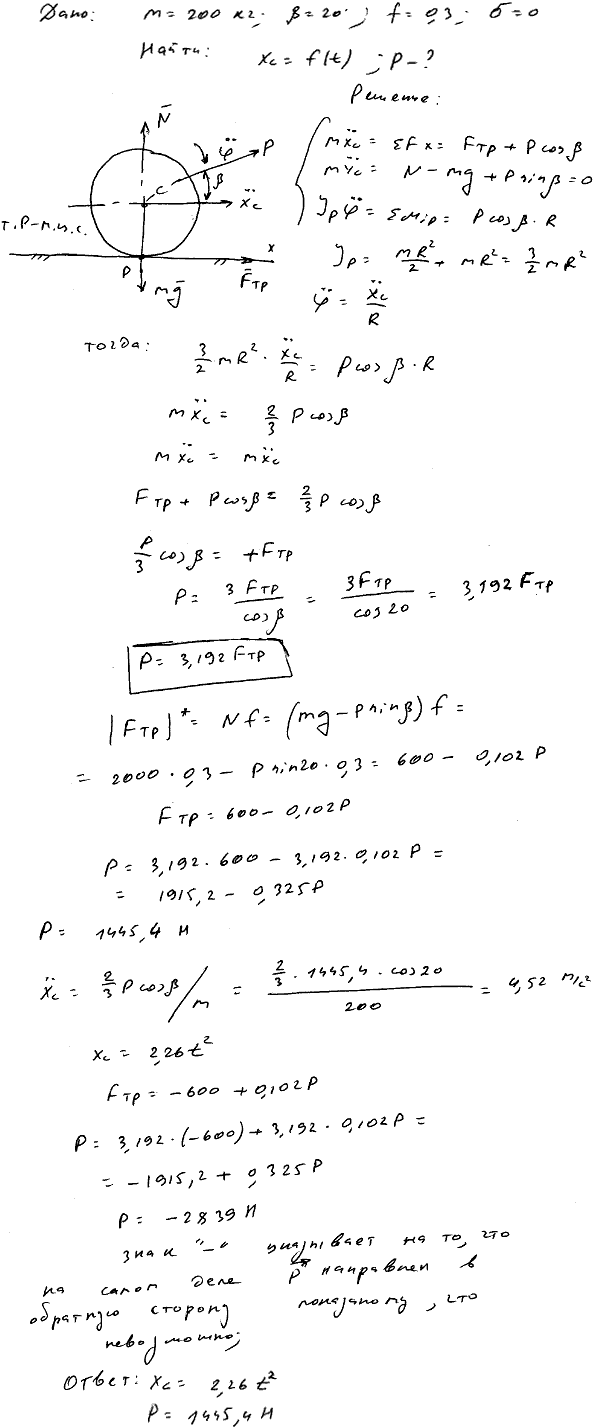 Дано: m = 200 кг; β = 20°; f = 0,3; δ = 0
Найти: x_c = f(t) ; P - ?
Решение:
mẍ_c = ΣFx = Fтр + P cos β
mÿ_c = N - mg + P sin β = 0
J_P φ̈ = ΣM_iP = P cos β · R
J_P = mR²/2 + mR² = 3/2 mR²
φ̈ = ẍ_c/R
N̄
φ̈
P
β
C
ẍ_c
т. P - м.ц.с.
x
P
F̄тр
mḡ
тогда: 3/2 mR² · ẍ_c/R = P cos β · R
mẍ_c = 2/3 P cos β
mẍ_c = mẍ_c
Fтр + P cos β = 2/3 P cos β
P/3 cos β = +Fтр
P = 3Fтр/cos β = 3Fтр/cos 20 = 3,192 Fтр
P = 3,192 Fтр
|Fтр|* = Nf = (mg - P sin β) f =
= 2000 · 0,3 - P sin 20 · 0,3 = 600 - 0,102 P
Fтр = 600 - 0,102 P
P = 3,192 · 600 - 3,192 · 0,102 P =
= 1915,2 - 0,325 P
P = 1445,4 Н
ẍ_c = 2/3 P cos β / m = (2/3 · 1445,4 · cos 20)/200 = 4,52 м/с²
x_c = 2,26 t²
Fтр = -600 + 0,102 P
P = 3,192 · (-600) + 3,192 · 0,102 P =
= -1915,2 + 0,325 P
P = -2839 Н
знак "-" указывает на то, что
на самом деле P направлен в
обратную сторону показаному, что
невозможно;
Ответ: x_c = 2,26 t²
P = 1445,4 Н